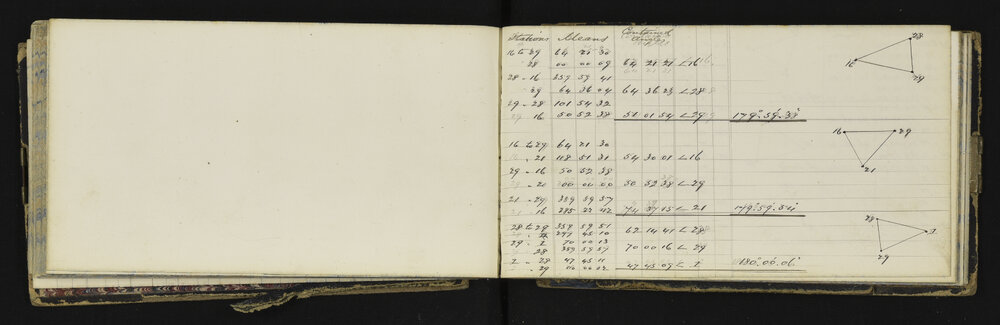 Stations Means Contained Angles
16 to 29 64 21 30
28 00 00 09 64 21 21 ∠16
28 - 16 359 59 41
29 64 36 04 64 36 23 ∠28
29 - 28 101 54 32
29 16 50 52 38 51 01 54 ∠29 179°.59'.38"
16 to 29 64 21 30
16 - 21 118 51 31 54 30 01 ∠16
29 - 16 50 52 38
00 00 00 50 52 38 ∠29
21 - 29 359 59 57
21 - 16 285 22 42 74 37 15 ∠21 179°.59'.54"
28 to 29 359 59 51
297 45 10 62 14 41 ∠28
29 - 2 70 00 13
28 359 59 57 70 00 16 ∠29
2 - 28 47 45 11
29 00 02 47 45 09 ∠2 180°.00'.06"
28
16
29
16
29
21
28
29